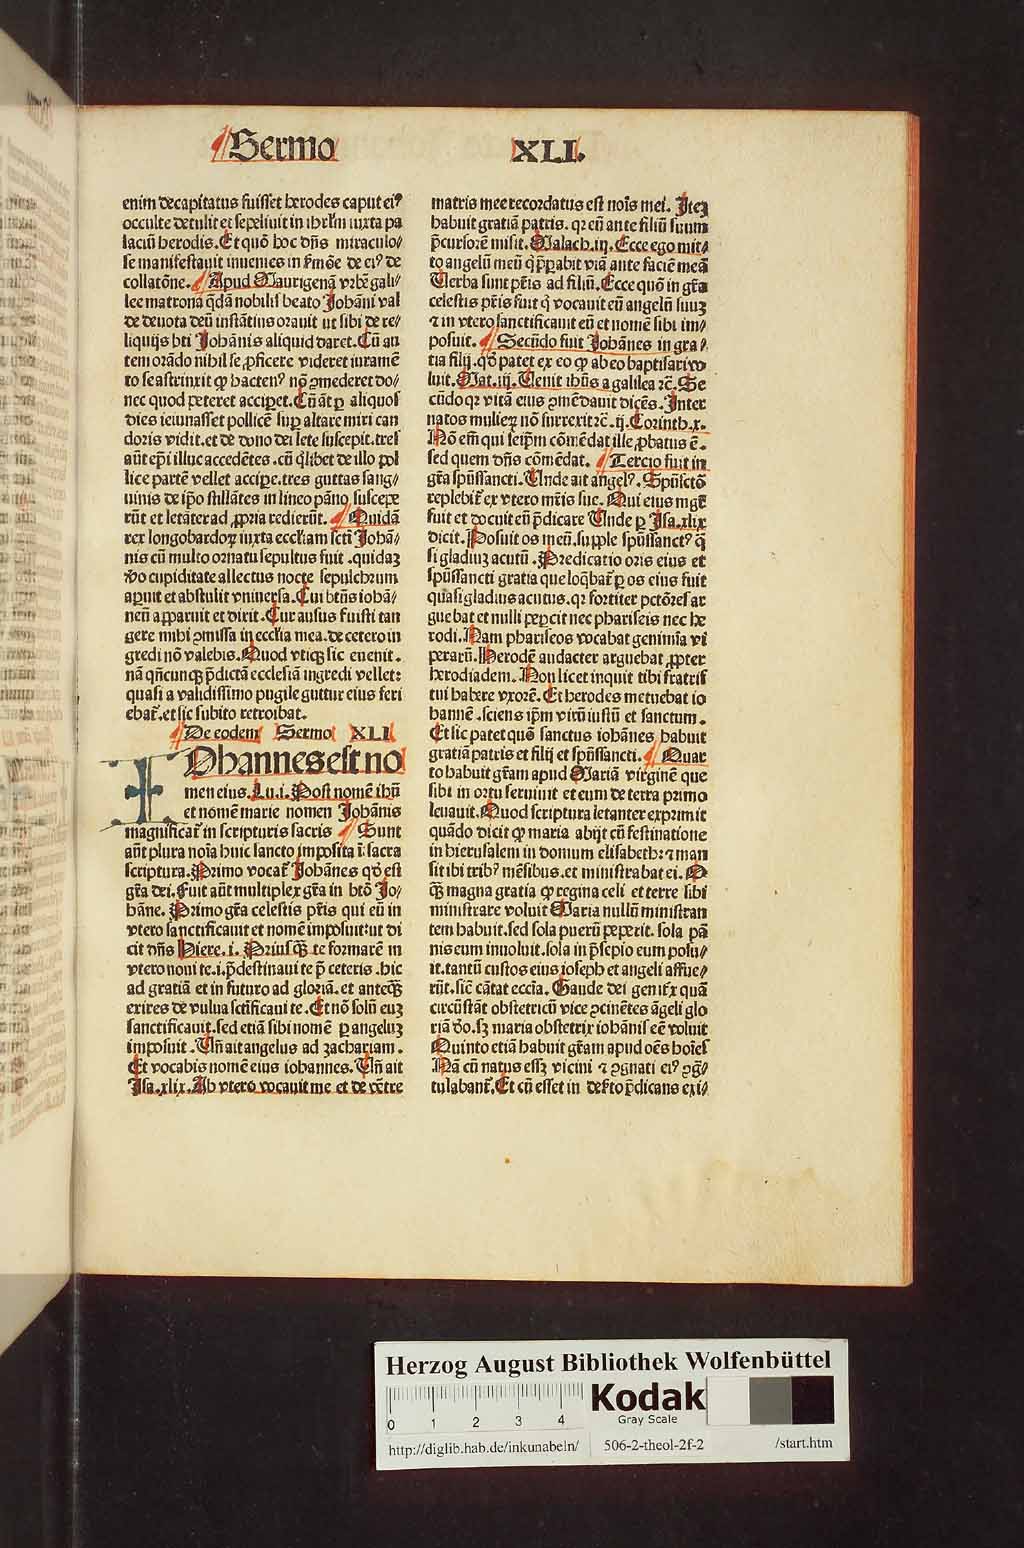 Sermo XLI.
enim decapitatus fuisset herodes caput eiꝰ
occulte detulit et sepeliuit in ihrlm̄ iuxta pa
laciū herodis. Et quō hoc dn̄s miraculo⸗
se manifestauit inuenies in ẜmōe de eiꝰ de
collatōne. Apud Maurigenā vrbē gali⸗
lee matrona q̄dā nobilis beato Johāni val
de deuota deū instātius orauit ut sibi de re⸗
liquijs bti Johānis aliquid daret. Cū au
tem orādo nihil se ꝓficere videret iuramē
to se astrinxit ꝙ hactenꝰ nō ꝯmederet do⸗
nec quod peteret acciꝑet. Cū āt ꝑ aliquos
dies ieiunasset pollicē suꝑ altare miri can
doris vidit. et de dono dei lete suscepit. tres
aūt ep̄i illuc accedētes. cū q̄libet de illo pol
lice partē vellet acciꝑe. tres guttas sang⸗
uinis de ip̄o stillātes in lineo pāno suscepe
rūt et letāter ad ꝓpria redierūt. Quidā
rex longobardoꝝ iuxta eccliam scti Johā⸗
nis cū multo ornatu sepultus fuit. quidaꝫ
v̊o cupiditate allectus nocte sepulchrum
apuit et abstulit vniuersa. Cui btūs iohā⸗
nen̄ apparuit et dixit. Cur ausus fuisti tan
gere mihi ꝯmissa in ecclia mea. de cetero in
gredi nō valebis. Quod vtiqꝫ sic euenit.
nā qn̄cunqꝫ p̄dictā ecclesiā ingredi vellet:
quasi a validissimo pugile guttur eius feri
ebat᷑. et sic subito retroibat.
De eodem Sermo XLI
IOhannes est no
men eius. Lu.i. Post nomē ihū
et nomē marie nomen Johānis
magnificat᷑ in scripturis sacris Sunt
aūt plura noīa huic sancto imposita ī sacra
scriptura. Primo vocat᷑ Johānes qđ est
gr̄a dei. Fuit aūt multiplex gr̄a in btō Jo⸗
hāne. Primo gr̄a celestis pr̄is qui eū in
vtero sanctificauit et nomē imposuit: ut di
cit dn̄s Hiere.i. Priusqꝫ te formarē in
vtero noui te. i. p̄destinaui te p̄ ceteris. hic
ad gratiā et in futuro ad gloriā. et anteqꝫ
exires de vulua sctificaui te. Et nō solū euꝫ
sanctificauit. sed etiā sibi nomē ꝑ angeluꝫ
imposuit. Un̄ ait angelus ad zachariam.
Et vocabis nomē eius iohannes. Un̄ ait
Isa.xlix. Ab vtero vocauit me et de vētre
matris mee recordatus est noīs mei. Iteꝫ
habuit gratiā patris. qꝛ eū ante filiū suum
p̄cursorē misit. Malach.iij. Ecce ego mit⸗
to angelū meū q̇ p̄parabit viā ante faciē meā
Uerba sunt pr̄is ad filiū. Ecce quō in gr̄a
celestis pr̄is fuit q̇ vocauit eū angelū suuꝫ
⁊ in vtero sanctificauit eū et nomē sibi im⸗
posuit. Secūdo fuit Johānes in gra⸗
tia filij. qđ patet ex eo ꝙ ab eo baptisari vo
luit. Mat.iij. Uenit ihūs a galilea ⁊c̄. Se
cūdo qꝛ vitā eius ꝯmēdauit dicēs. Inter
natos mulieꝝ nō surrexit ⁊c̄. ij. Corinth.x.
Nō em̄ qui seip̄m cōmēdat ille ꝓbatus ē.
sed quem dn̄s cōmēdat. Tercio fuit in
gr̄a spūssancti. Unde ait angelꝰ. Spūsctō
replebit᷑ ex vtero mr̄is sue. Qui eius mgr̄
fuit et docuit eū p̄dicare Unde ꝑ Isa.xlix
dicit. Posuit os meū. supple spūssanctꝰ q̄
si gladiuꝫ acutū. Predicatio oris eius et
spūssancti gratia que loq̄bat᷑ ꝑ os eius fuit
quasi gladius acutus. qꝛ fortiter pctōres ar
guebat et nulli peꝑcit nec phariseis nec he
rodi. Nam phariseos vocabat genimīa vi
perarū. Herodē audacter arguebat ꝓpter
herodiadem. Non licet inquit tibi fratris
tui habere vxorē. Et herodes metuebat io
hannē. sciens ip̄m virū iustū et sanctum.
Et sic patet quō sanctus iohānes habuit
gratiā patris et filij et spūssancti. Quar
to habuit gr̄am apud Mariā virginē que
sibi in ortu seruiuit et eum de terra primo
leuauit. Quod scriptura letanter exprimit
quādo dicit ꝙ maria abijt cū festinatione
in hierusalem in domum elisabeth: ⁊ man
sit ibi tribꝰ mēsibus. et ministrabat ei. O
qꝫ magna gratia ꝙ regina celi et terre sibi
ministrare voluit Maria nullū ministran
tem habuit. sed sola puerū peperit. sola pā
nis eum inuoluit. sola in p̄sepio eum posu⸗
it. tantū custos eius ioseph et angeli affue⸗
rūt. sic̄ cātat eccīa. Gaude dei genit᷑x quā
circūstāt obstetricū vice ꝯcinētes āgeli glo
riā dō. sꝫ maria obstetrix iohānis eē voluit
Quinto etiā habuit gr̄am apud oēs hoīes
Nā cū natus essꝫ vicini ⁊ ꝯgnati eiꝰ ꝯgr̄a⸗
tulabant᷑. Et cū esset in deẜto p̄dicans exi⸗
Herzog August Bibliothek Wolfenbüttel
0 1 2 3 4
Kodak
Gray Scale
http://diglib.hab.de/inkunabeln/ 506-2-theol-2f-2 /start.htm